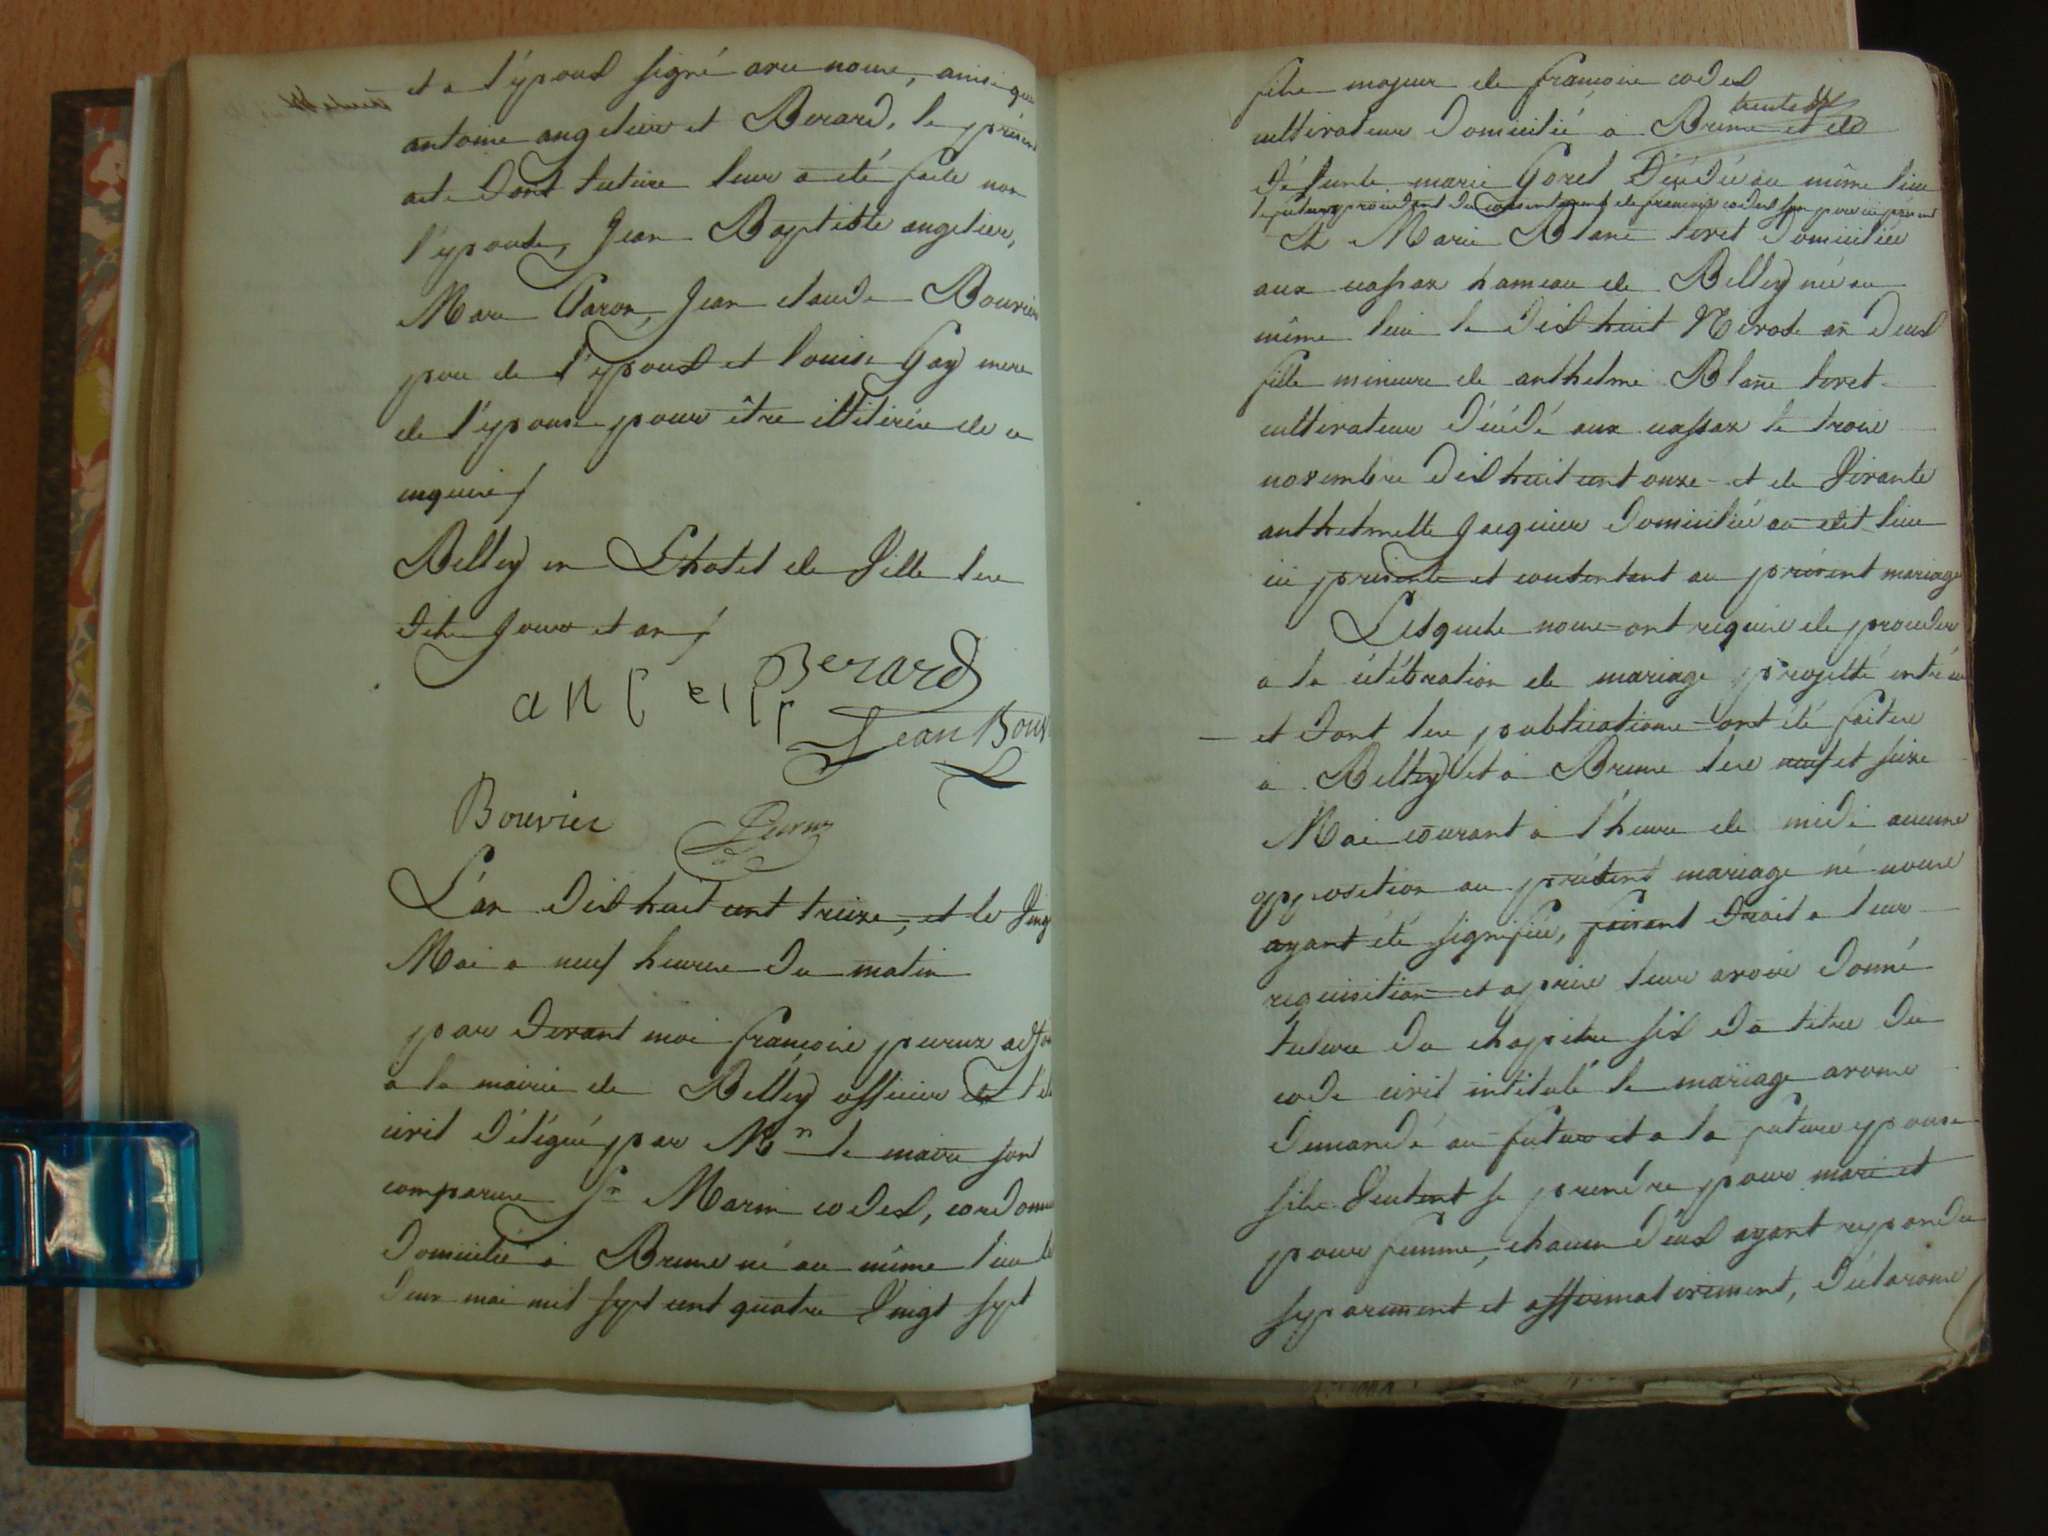 et a l'époux signé avec nous, ainsi que
antoine angelier et Berard, le présent
acte dont lecture leur a été faite non
l'épouse, Jean Baptiste angelier,
Marc Caron, Jean claude Bouvier
pere de l'époux et louise Gay mere
de l'épouse pour être illitérés de ce
enquis
Belley en L'hotel de Ville les
dits jour et an
Berard
Jean Bouv
Bouvier
L'an dix huit cent treize, et le Vingt
Mai a neuf heures du matin
par devant moi françois peruz adjoint
a la mairie de Belley officier de l'état
civil délégué par Mr le maire sont
comparus Sr Marin codex, cordonnier
domicilié a Brens né au même lieu le
deux mai mil sept cent quatre Vingt sept
fils majeur de françois codex
cultivateur domicilié a Brens et de
défunte marie Goret décédée au même lieu
le futur procédant du consentement de françois codex son pere ici présent
Et Marie Blanc toret domiciliée
aux cassaz hameau de Belley née au
même lieu le dix huit Nivose an deux
fille mineure de anthelme Blanc toret
cultivateur décédé aux cassaz le trois
novembre dix huit cent onze et de Vivante
anthelmette Jacquier domiciliée au dit lieu
ici présente et consentant au présent mariage
Lesquels nous ont requis de procéder
a la célébration de mariage projetté entr'eux
et dont les publications ont été faites
a Belley et a Brens les neuf et seize
Mai courant a l'heure de midi aucune
opposition au présent mariage ne nous
ayant été signifiée, faisant droit a leur
requisition et après leur avoir donné
lecture du chapitre six du titre du
code civil intitulé le mariage avons
demandé au futur et a la future epouse
s'ils veulent se prendre pour mari et
pour femme, chacun d'eux ayant repondu
separement et affirmativement, déclarons